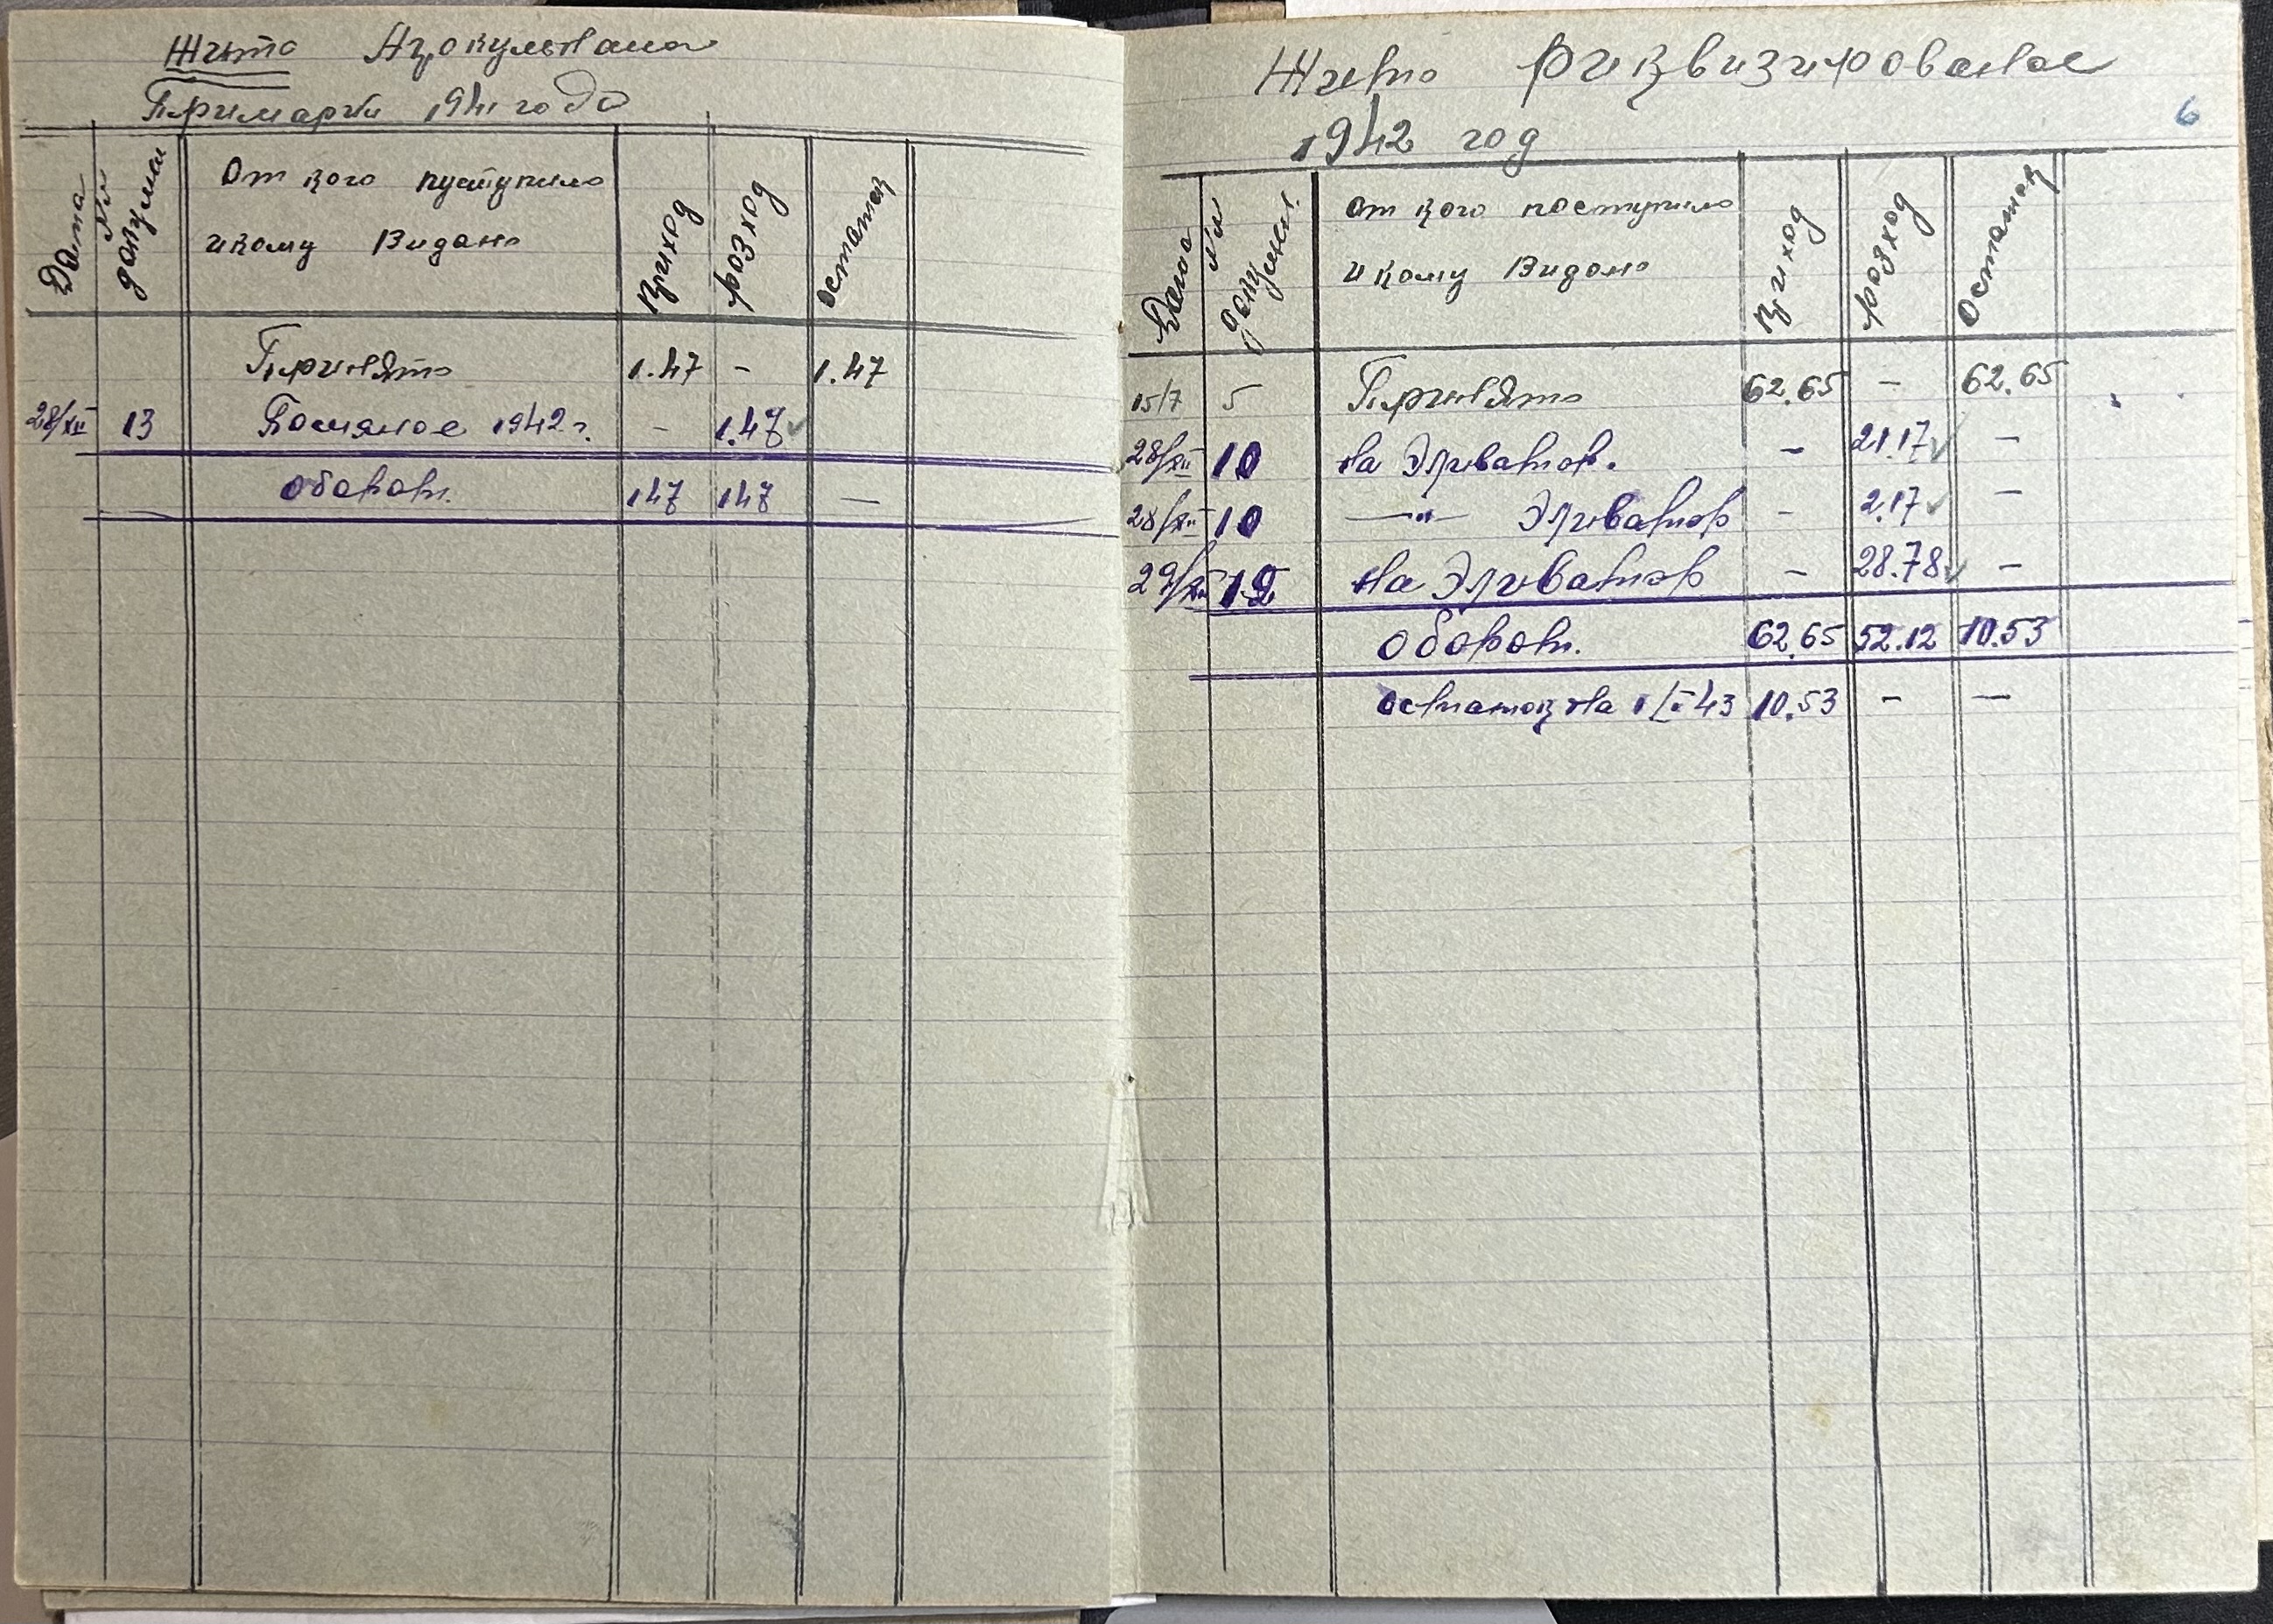 Жито Агрокультана
Примарии 1941 года
Дата
№№ докумен
От кого пуступило
и кому Видано
Приход
розход
остаток
Принято 1.47 - 1.47
28/XII 13 1942 г. - 1.47
оборот. 147 147 —
Жито риквизированое
1942 год
6
Дата
№№ документ.
От кого поступило
и кому Видано
Приход
розход
Остаток
15/7 5 Принято 62.65 - 62.65
28/XII 10 на Эливатор. - 21.17 -
28/XII 10 —"— Эливатор - 2.17 -
29/XII 12 На Эливатор - 28.78 -
Оборот. 62.65 52.12 10.53
остаток на 1/I 43 10.53 - —